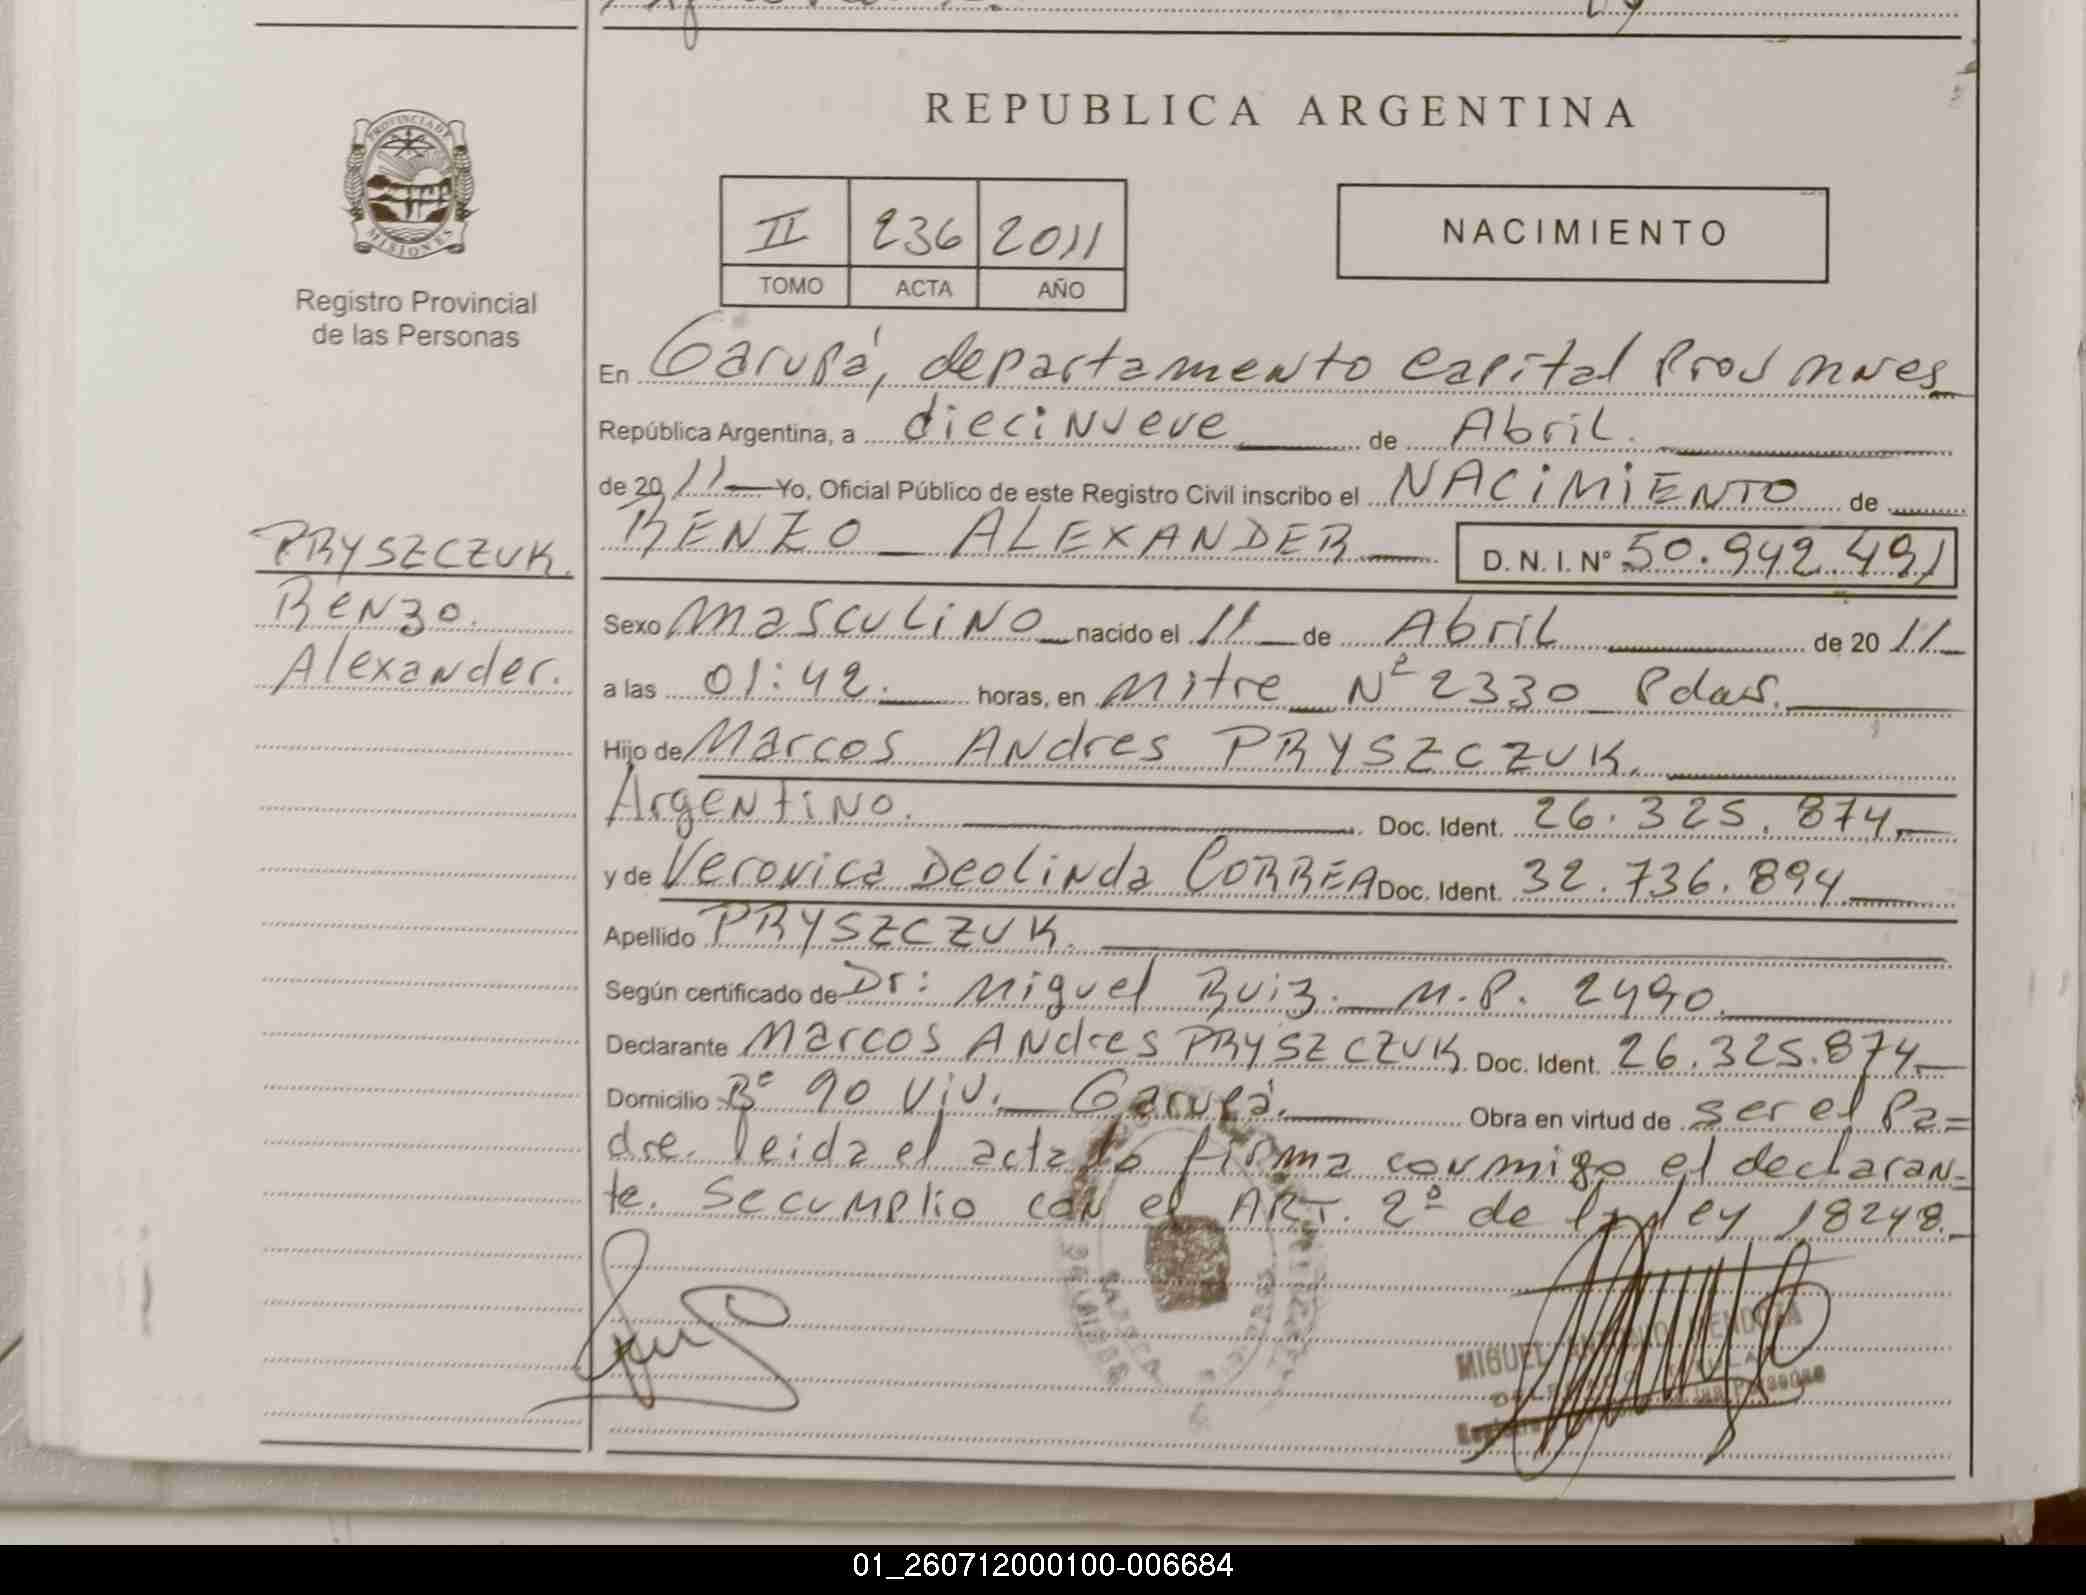 REPUBLICA ARGENTINA
PROVINCIA DE
MISIONES
Registro Provincial
de las Personas
II 236 2011
TOMO ACTA AÑO
NACIMIENTO
En Garupá, departamento capital Prov Mnes
República Argentina, a diecinueve de Abril.
de 2011 Yo, Oficial Público de este Registro Civil inscribo el NACIMIENTO de
RENZO ALEXANDER D. N. I. Nº 50.942.491
PRYSZCZUK.
Renzo.
Alexander.
Sexo Masculino nacido el 11 de Abril de 2011
a las 01:42. horas, en Mitre Nº 2330 Pdas.
Hijo de Marcos Andres PRYSZCZUK.
Argentino. Doc. Ident. 26.325.874
y de Veronica Deolinda CORREA Doc. Ident. 32.736.894
Apellido PRYSZCZUK.
Según certificado de Dr: Miguel Ruiz. M.P. 2490.
Declarante Marcos Andres PRYSZCZUK. Doc. Ident. 26.325.874
Domicilio Bº 90 Viv. Garupá. Obra en virtud de ser el Pa=
dre. leida el acta la firma conmigo el declaran=
te. Se cumplio con el ART. 2º de la ley 18248.
MIGUEL ANTONIO MENDOZA
las Personas
01_260712000100-006684